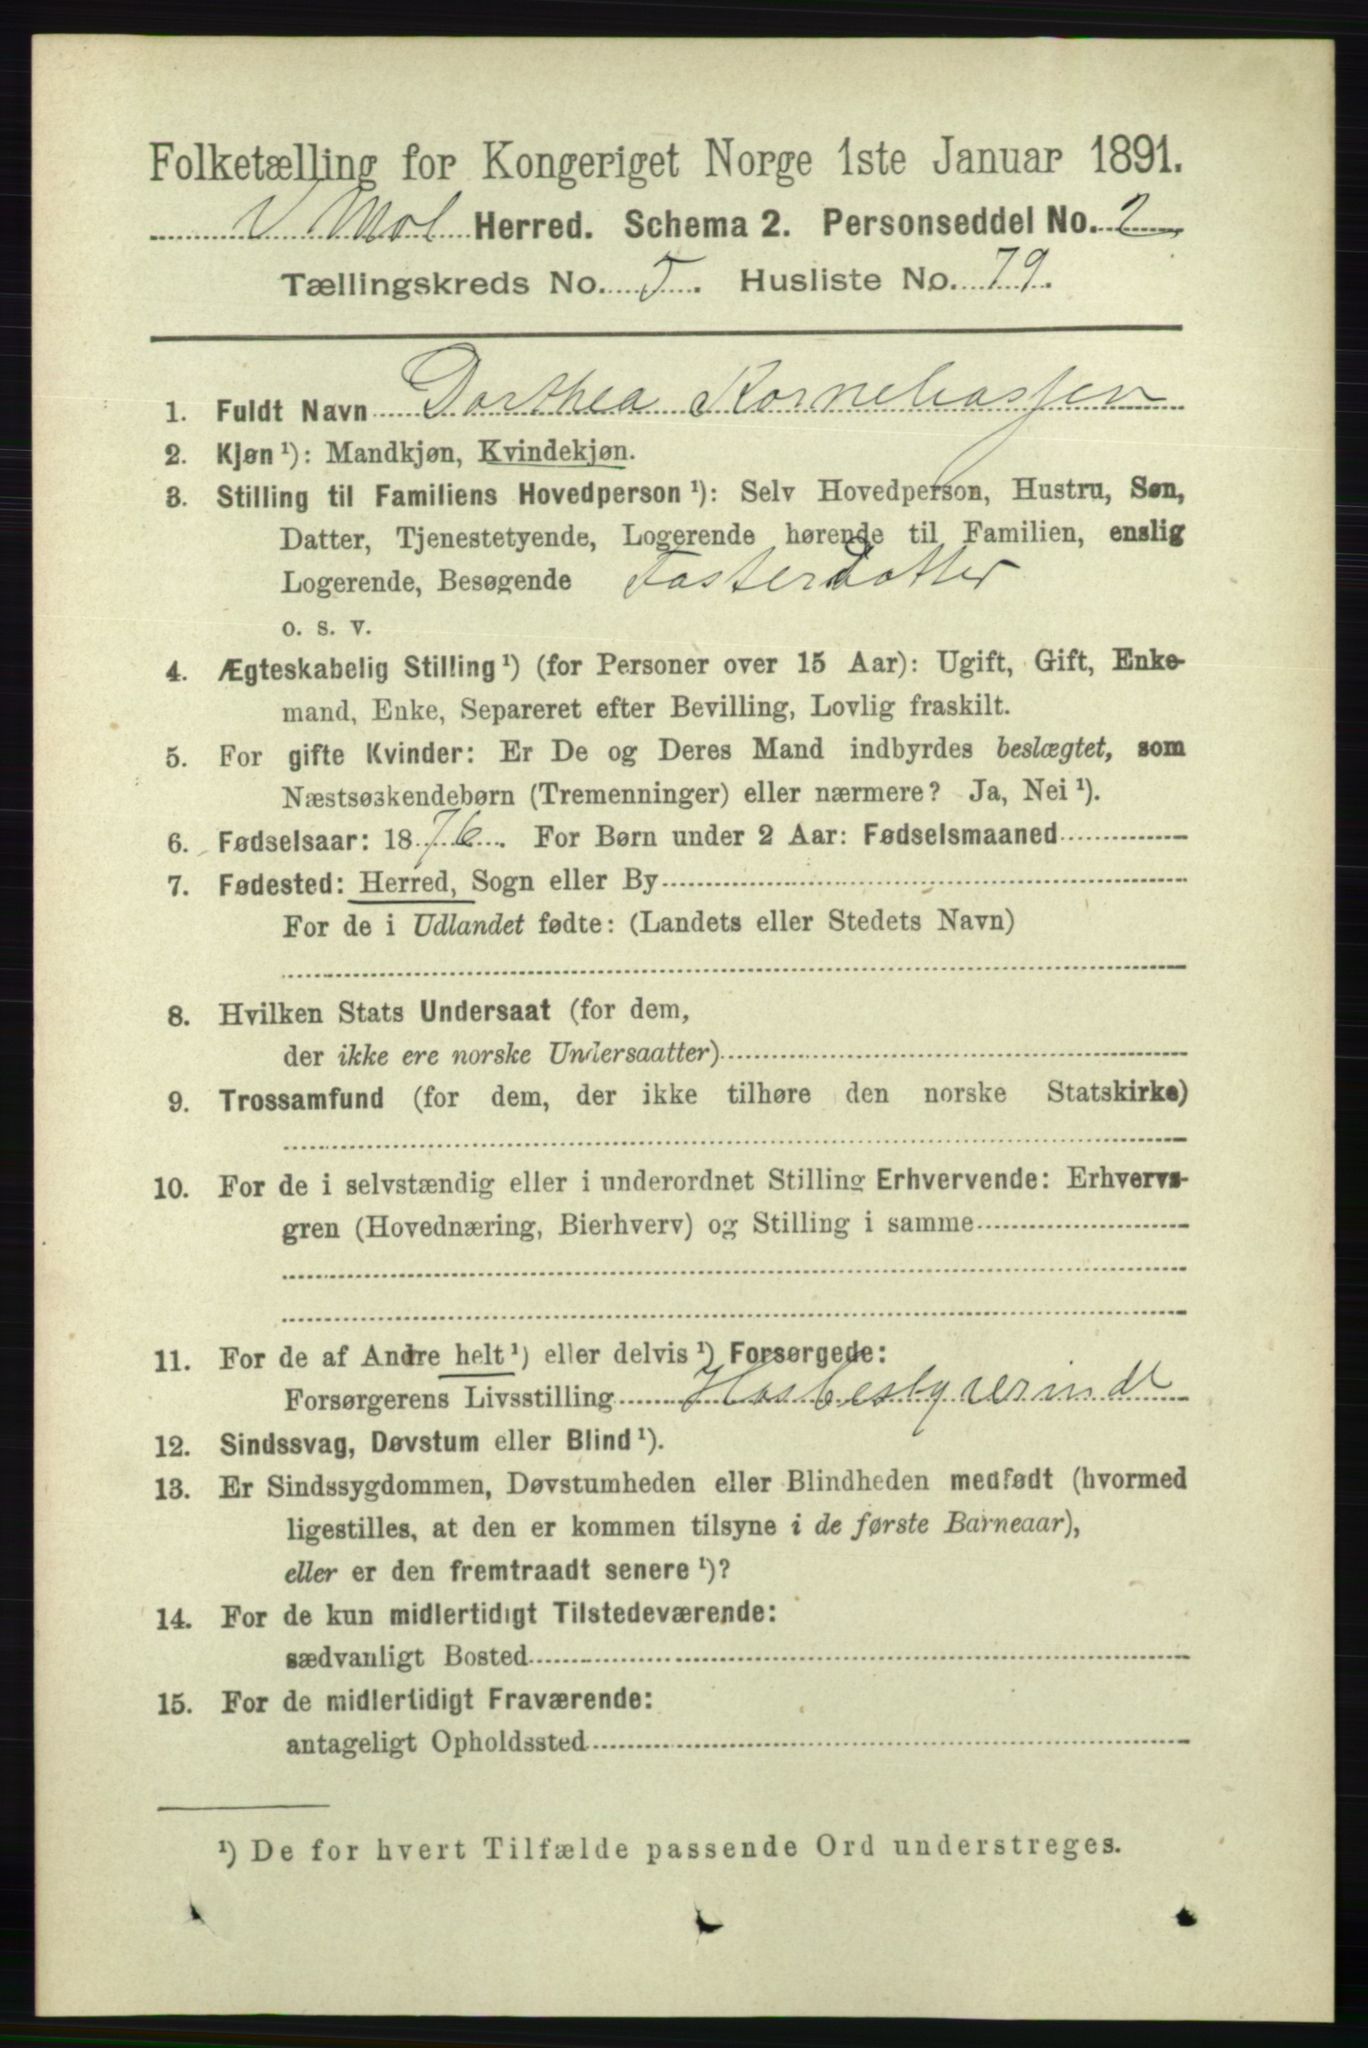 Folketælling for Kongeriget Norge 1ste Januar 1891.
V Mol Herred. Schema 2. Personseddel No. 2
Tællingskreds No. 5. Husliste No. 79.
1. Fuldt Navn Dorthea Korneliassen
2. Kjøn ¹): Mandkjøn, Kvindekjøn.
3. Stilling til Familiens Hovedperson ¹): Selv Hovedperson, Hustru, Søn,
Datter, Tjenestetyende, Logerende hørende til Familien, enslig
Logerende, Besøgende Fosterdatter
o. s. v.
4. Ægteskabelig Stilling ¹) (for Personer over 15 Aar): Ugift, Gift, Enke-
mand, Enke, Separeret efter Bevilling, Lovlig fraskilt.
5. For gifte Kvinder: Er De og Deres Mand indbyrdes beslægtet, som
Næstsøskendebørn (Tremenninger) eller nærmere? Ja, Nei ¹).
6. Fødselsaar: 1876. For Børn under 2 Aar: Fødselsmaaned
7. Fødested: Herred, Sogn eller By
For de i Udlandet fødte: (Landets eller Stedets Navn)
8. Hvilken Stats Undersaat (for dem,
der ikke ere norske Undersaatter)
9. Trossamfund (for dem, der ikke tilhøre den norske Statskirke)
10. For de i selvstændig eller i underordnet Stilling Erhvervende: Erhvervs-
gren (Hovednæring, Bierhverv) og Stilling i samme
11. For de af Andre helt ¹) eller delvis ¹) Forsørgede:
Forsørgerens Livsstilling Husbestyrerinde
12. Sindssvag, Døvstum eller Blind ¹).
13. Er Sindssygdommen, Døvstumheden eller Blindheden medfødt (hvormed
ligestilles, at den er kommen tilsyne i de første Barneaar),
eller er den fremtraadt senere ¹)?
14. For de kun midlertidigt Tilstedeværende:
sædvanligt Bosted
15. For de midlertidigt Fraværende:
antageligt Opholdssted
¹) De for hvert Tilfælde passende Ord understreges.